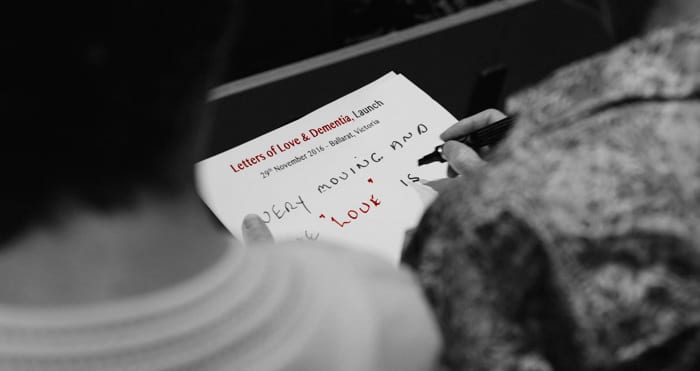 Letters of Love & Dementia, Launch
29th November 2016 - Ballarat, Victoria
VERY MOVING AND
"LOVE" IS